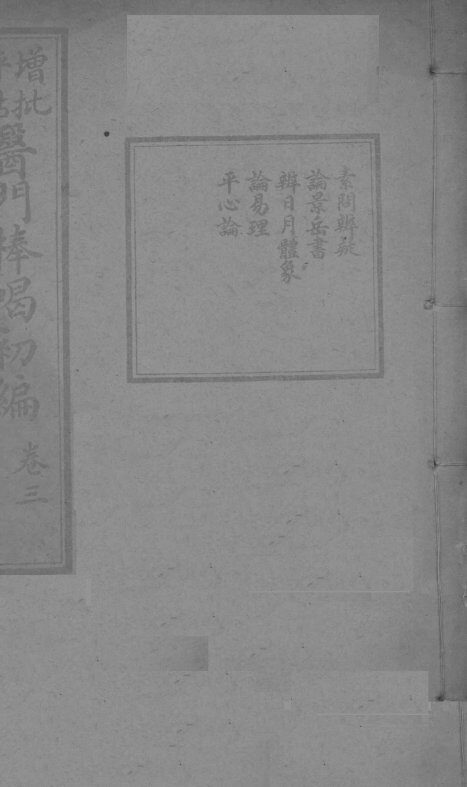 素問辨疑
論景岳書
辨日月體象
論易理
平心論
增批
評點
醫門棒喝初編
卷三